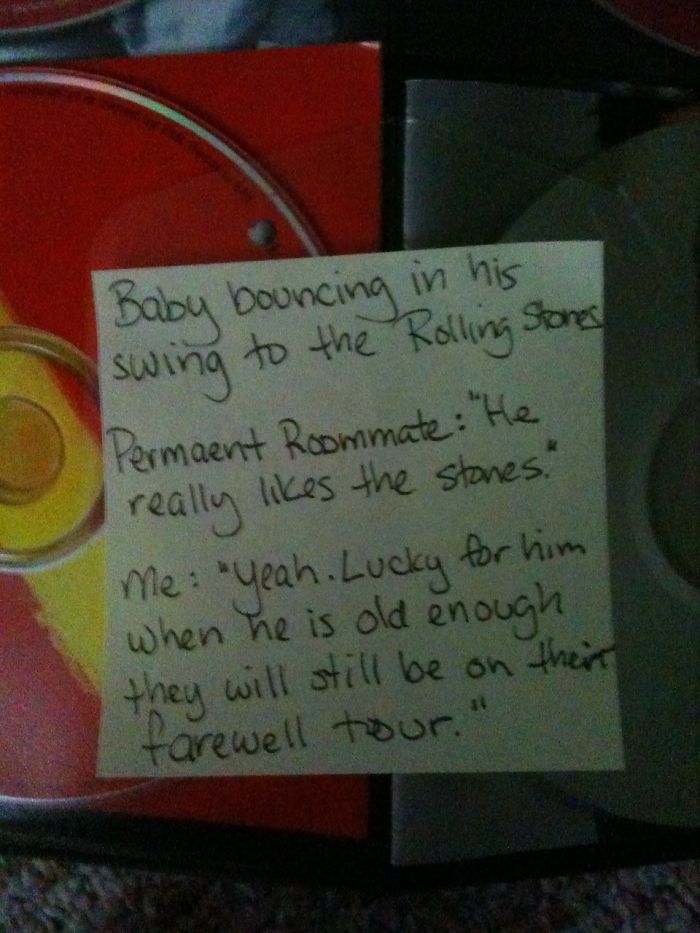 Baby bouncing in his
swing to the Rolling Stones
Permaent Roommate: "He
really likes the stones."
Me: "Yeah. Lucky for him
when he is old enough
they will still be on their
farewell tour."